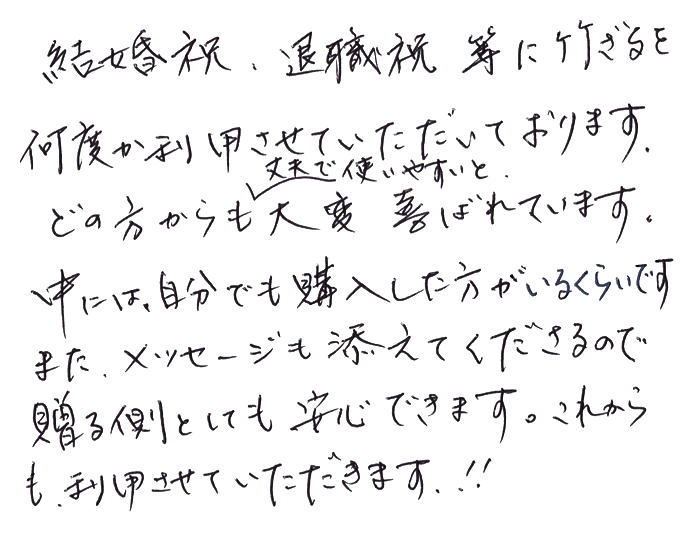 結婚祝、退職祝 等に竹ざるを
何度か利用させていただいております。
丈夫で使いやすいと、
どの方からも大変 喜ばれています。
中には、自分でも購入した方がいるくらいです
また、メッセージも添えてくださるので
贈る側としても 安心できます。これから
も、利用させていただきます。!!